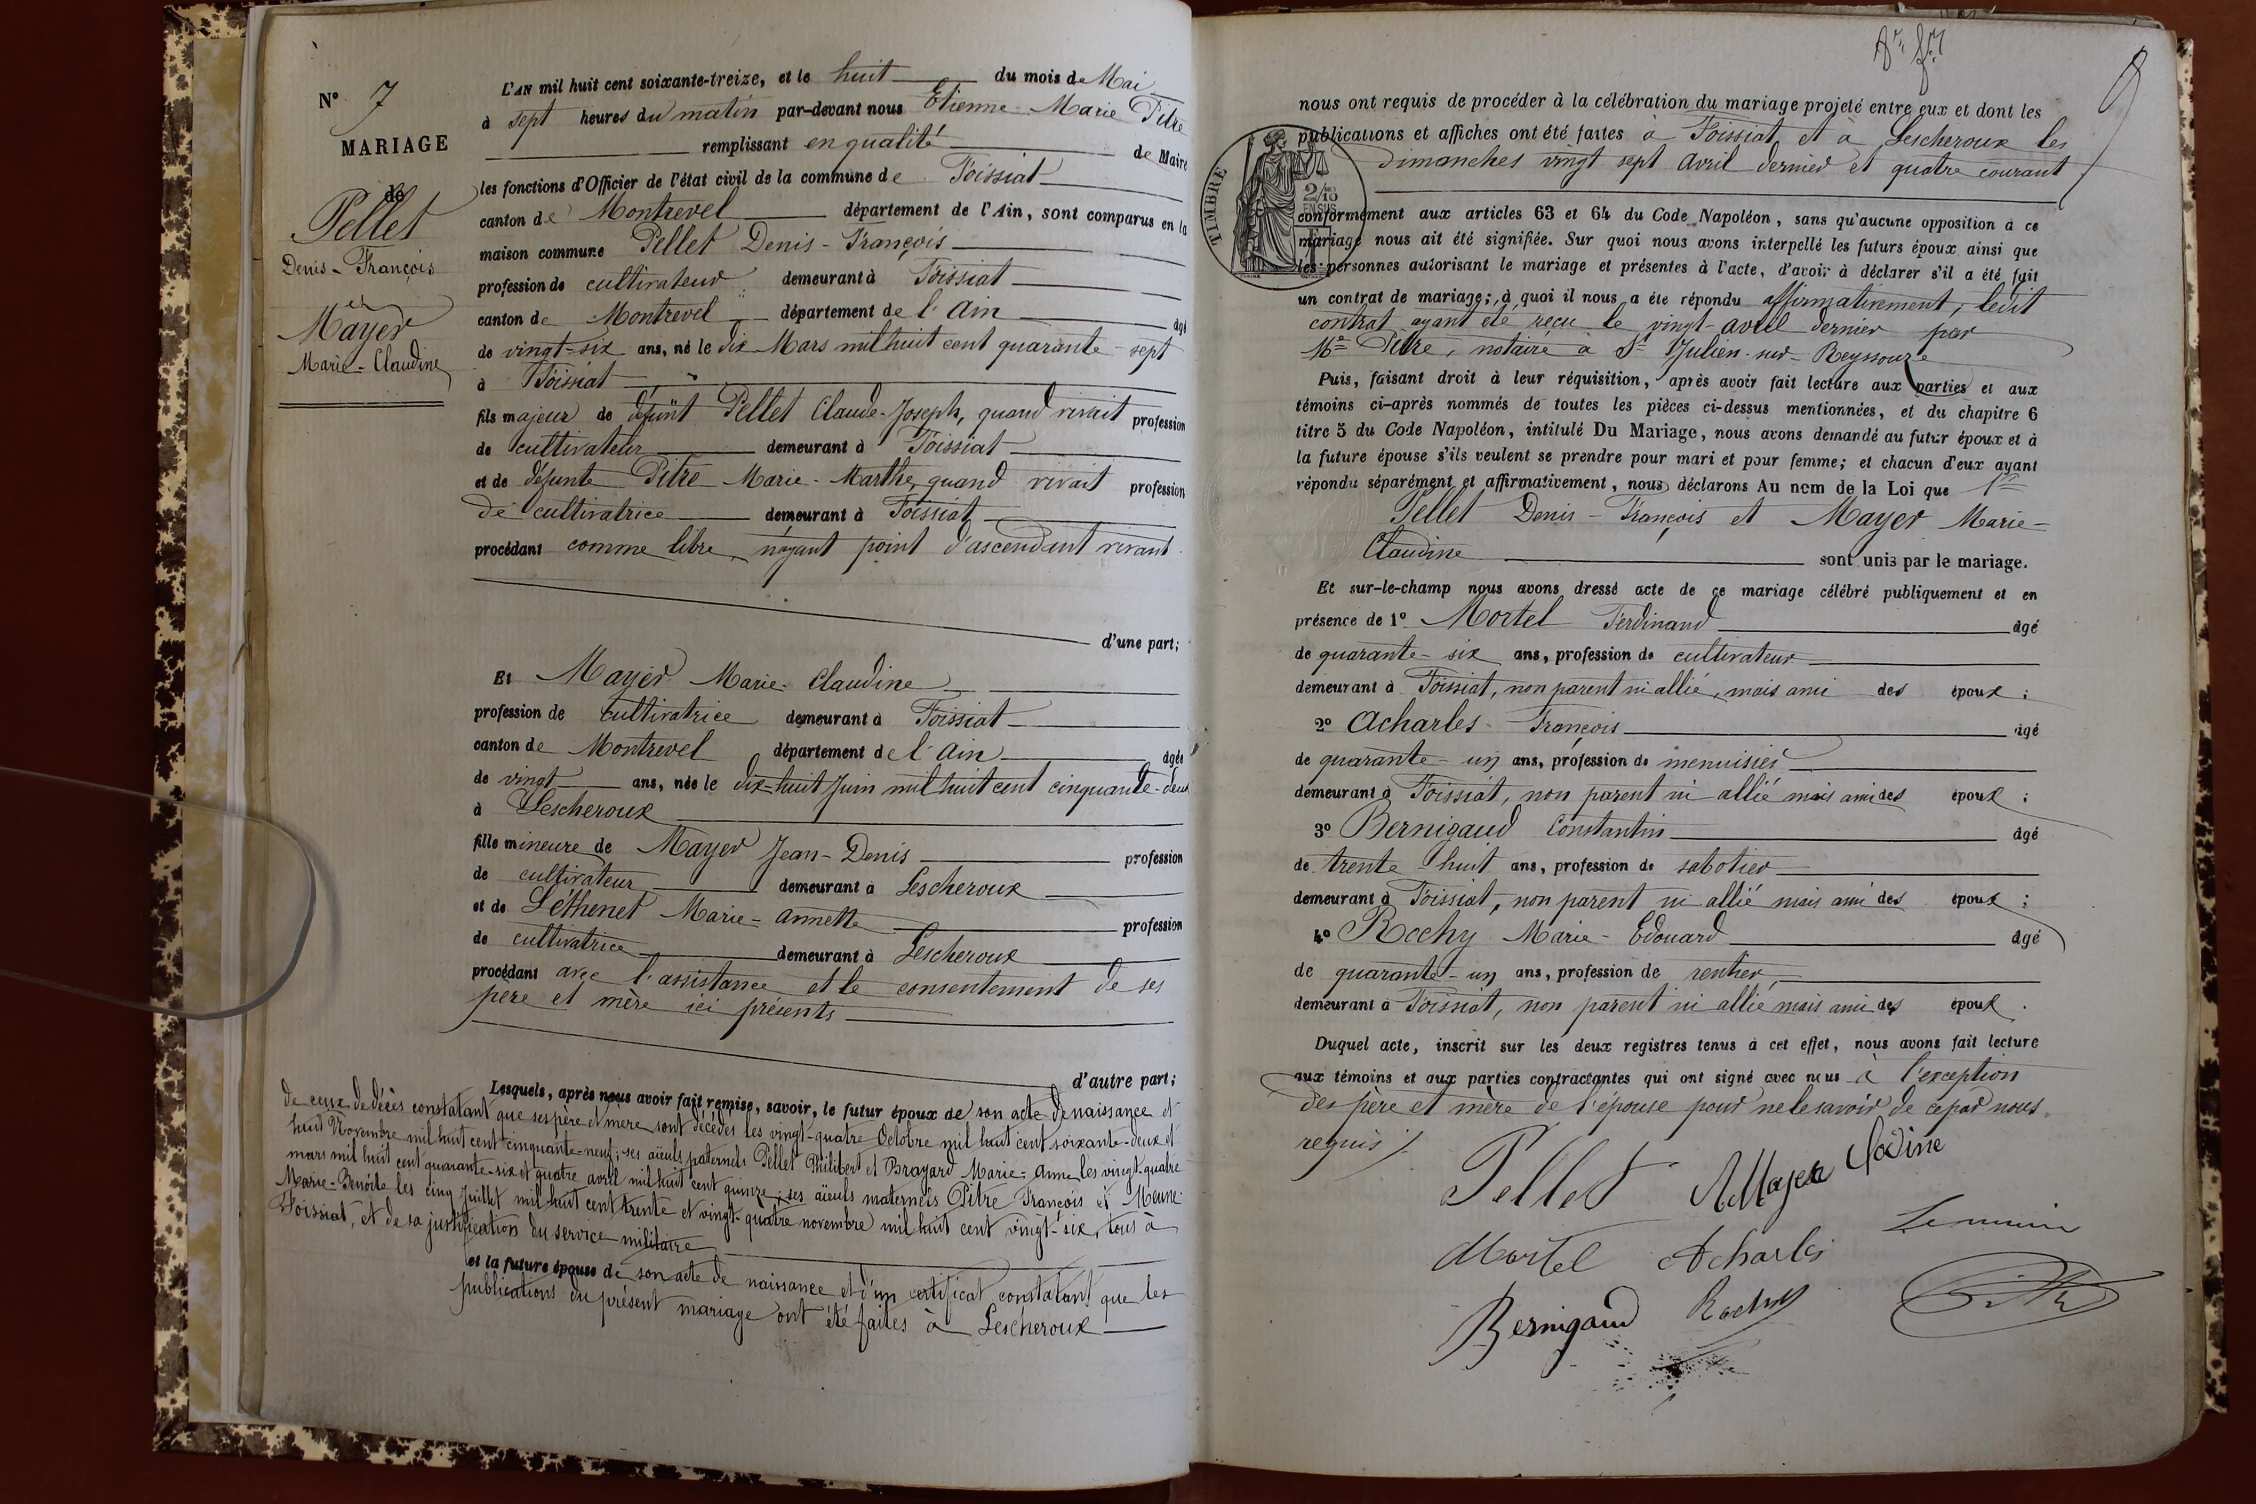 N° 7
MARIAGE
de
Pellet
Denis-François
et
Mayer
Marie-Claudine
L'AN mil huit cent soixante-treize, et le huit du mois de Mai
à sept heures du matin par-devant nous Etienne-Marie Pitre
remplissant en qualité de Maire
les fonctions d'Officier de l'état civil de la commune de Foissiat
canton de Montrevel département de l'Ain, sont comparus en la
maison commune Pellet Denis-François
profession de cultivateur demeurant à Foissiat
canton de Montrevel département de l'Ain âgé
de vingt-six ans, né le dix Mars mil huit cent quarante-sept
à Foissiat
fils majeur de défunt Pellet Claude-Joseph, quand vivait profession
de cultivateur demeurant à Foissiat
et de défunte Pitre Marie-Marthe, quand vivait profession
de cultivatrice demeurant à Foissiat
procédant comme libre, n'ayant point d'ascendant vivant
d'une part;
Et Mayer Marie-Claudine
profession de cultivatrice demeurant à Foissiat
canton de Montrevel département de l'Ain âgée
de vingt ans, née le dix-huit Juin mil huit cent cinquante-deux
à Lescheroux
fille mineure de Mayer Jean-Denis profession
de cultivateur demeurant à Lescheroux
et de Léthenet Marie-Annette profession
de cultivatrice demeurant à Lescheroux
procédant avec l'assistance et le consentement de ses
père et mère ici présents
d'autre part;
Lesquels, après nous avoir fait remise, savoir, le futur époux de son acte de naissance et
de ceux de décès constatant que ses père et mère sont décédés les vingt-quatre Octobre mil huit cent soixante-deux et
huit Novembre mil huit cent cinquante-neuf; ses aïeuls paternels Pellet Philibert et Brayard Marie-Anne les vingt-quatre
mars mil huit cent quarante-six et quatre avril mil huit cent quinze; ses aïeuls maternels Pitre François et Meune
Marie-Benoîte les cinq Juillet mil huit cent trente et vingt-quatre novembre mil huit cent vingt-six, tous à
Foissiat, et de sa justification du service militaire
et la future épouse de son acte de naissance et d'un certificat constatant que les
publications du présent mariage ont été faites à Lescheroux
nous ont requis de procéder à la célébration du mariage projeté entre eux et dont les
publications et affiches ont été faites à Foissiat et à Lescheroux les
dimanches vingt sept avril dernier et quatre courant
TIMBRE
2/10
EN SUS
conformément aux articles 63 et 64 du Code Napoléon, sans qu'aucune opposition à ce
mariage nous ait été signifiée. Sur quoi nous avons interpellé les futurs époux ainsi que
les personnes autorisant le mariage et présentes à l'acte, d'avoir à déclarer s'il a été fait
un contrat de mariage; à quoi il nous a été répondu affirmativement, ledit
contrat ayant été reçu le vingt avril dernier par
Me Pitre, notaire à St Julien-sur-Reyssouze
Puis, faisant droit à leur réquisition, après avoir fait lecture aux parties et aux
témoins ci-après nommés de toutes les pièces ci-dessus mentionnées, et du chapitre 6
titre 5 du Code Napoléon, intitulé Du Mariage, nous avons demandé au futur époux et à
la future épouse s'ils veulent se prendre pour mari et pour femme; et chacun d'eux ayant
répondu séparément et affirmativement, nous déclarons Au nom de la Loi que
Pellet Denis-François et Mayer Marie-
Claudine sont unis par le mariage.
Et sur-le-champ nous avons dressé acte de ce mariage célébré publiquement et en
présence de 1° Mortel Ferdinand âgé
de quarante-six ans, profession de cultivateur
demeurant à Foissiat, non parent ni allié, mais ami des époux;
2° Acharles François âgé
de quarante-un ans, profession de menuisier
demeurant à Foissiat, non parent ni allié mais ami des époux;
3° Bernigaud Constantin âgé
de trente huit ans, profession de sabotier
demeurant à Foissiat, non parent ni allié mais ami des époux;
4° Rochy Marie-Edouard âgé
de quarante-un ans, profession de rentier,
demeurant à Foissiat, non parent ni allié mais ami des époux.
Duquel acte, inscrit sur les deux registres tenus à cet effet, nous avons fait lecture
aux témoins et aux parties contractantes qui ont signé avec nous à l'exception
des père et mère de l'épouse pour ne le savoir de ce par nous
requis
Pellet
Mortel Acharles
Bernigaud Rochy